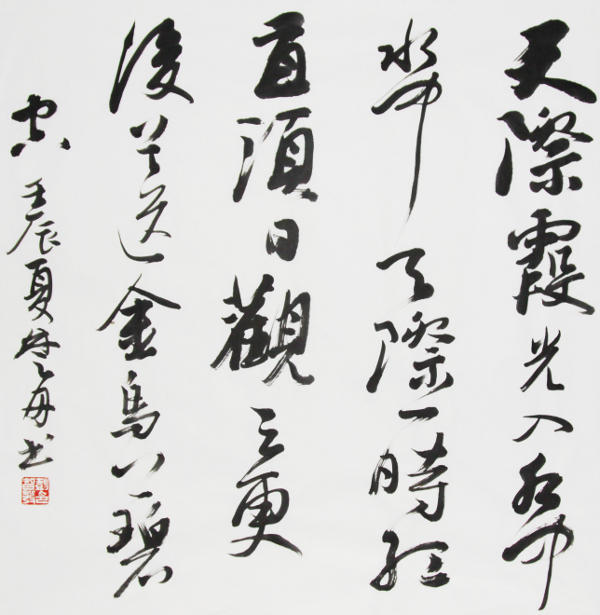 天際霞光入水中
水中天際一時紅
直須日觀三更
後首送金烏上碧
空 壬辰夏 舟书